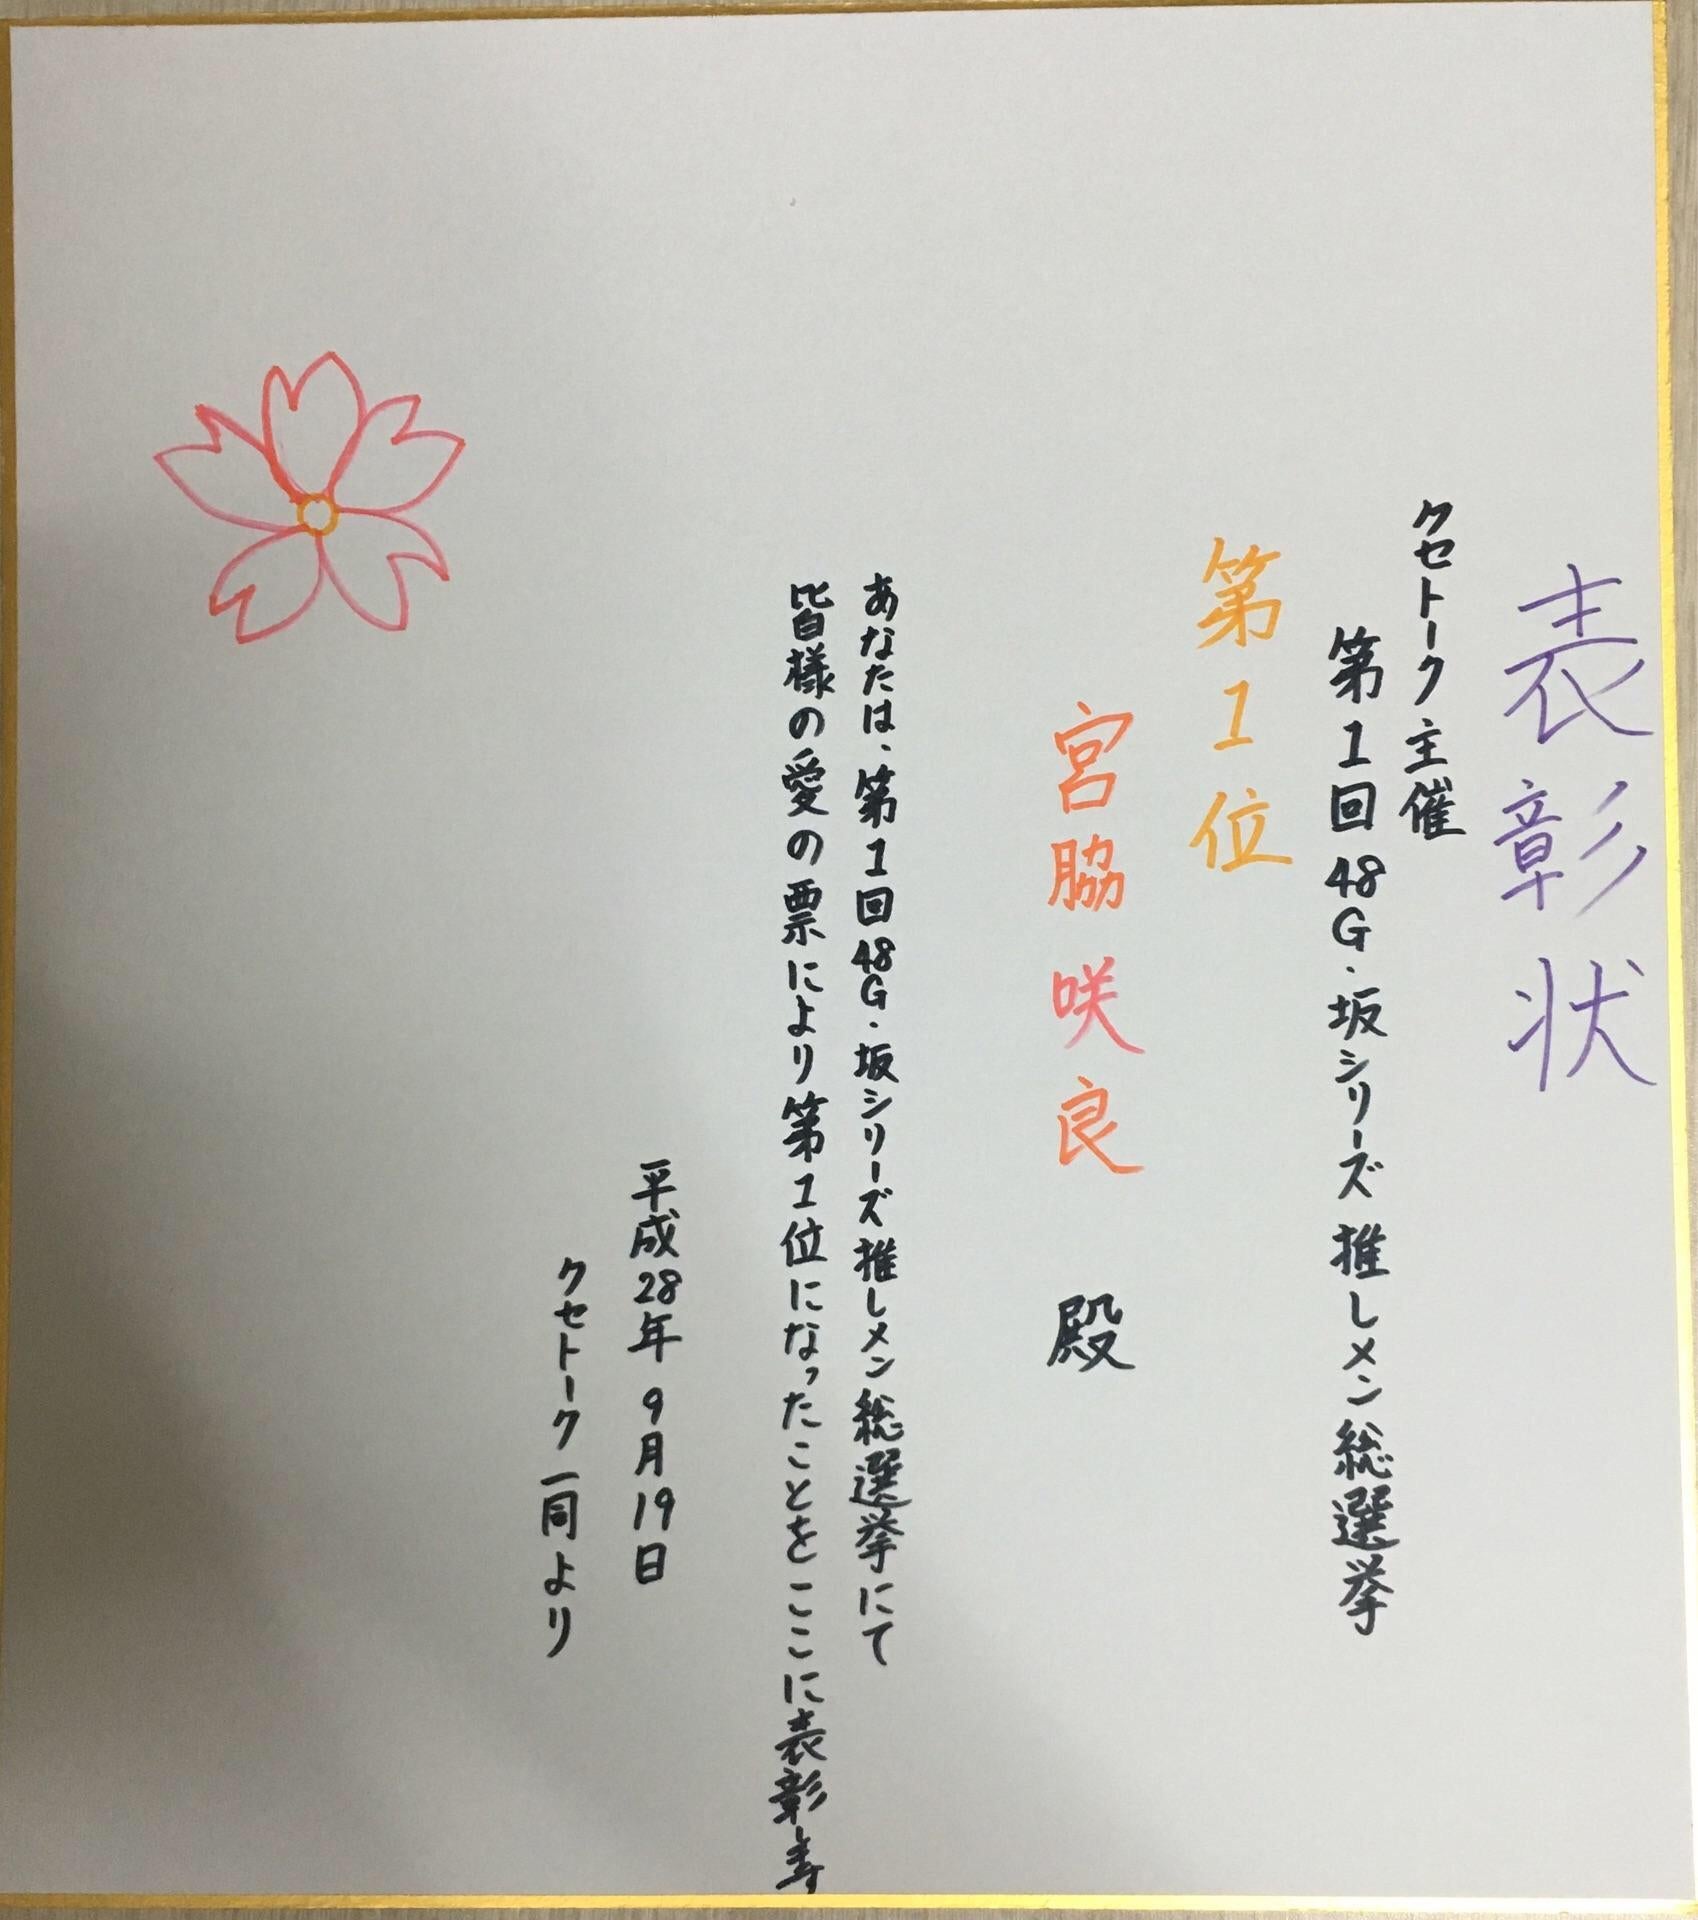 表彰状
クセトーク主催
第1回48G・坂シリーズ推しメン総選挙
第1位
宮脇咲良 殿
あなたは、第1回48G・坂シリーズ推しメン総選挙にて
皆様の愛の票により第1位になったことをここに表彰します
平成28年9月19日
クセトーク一同より